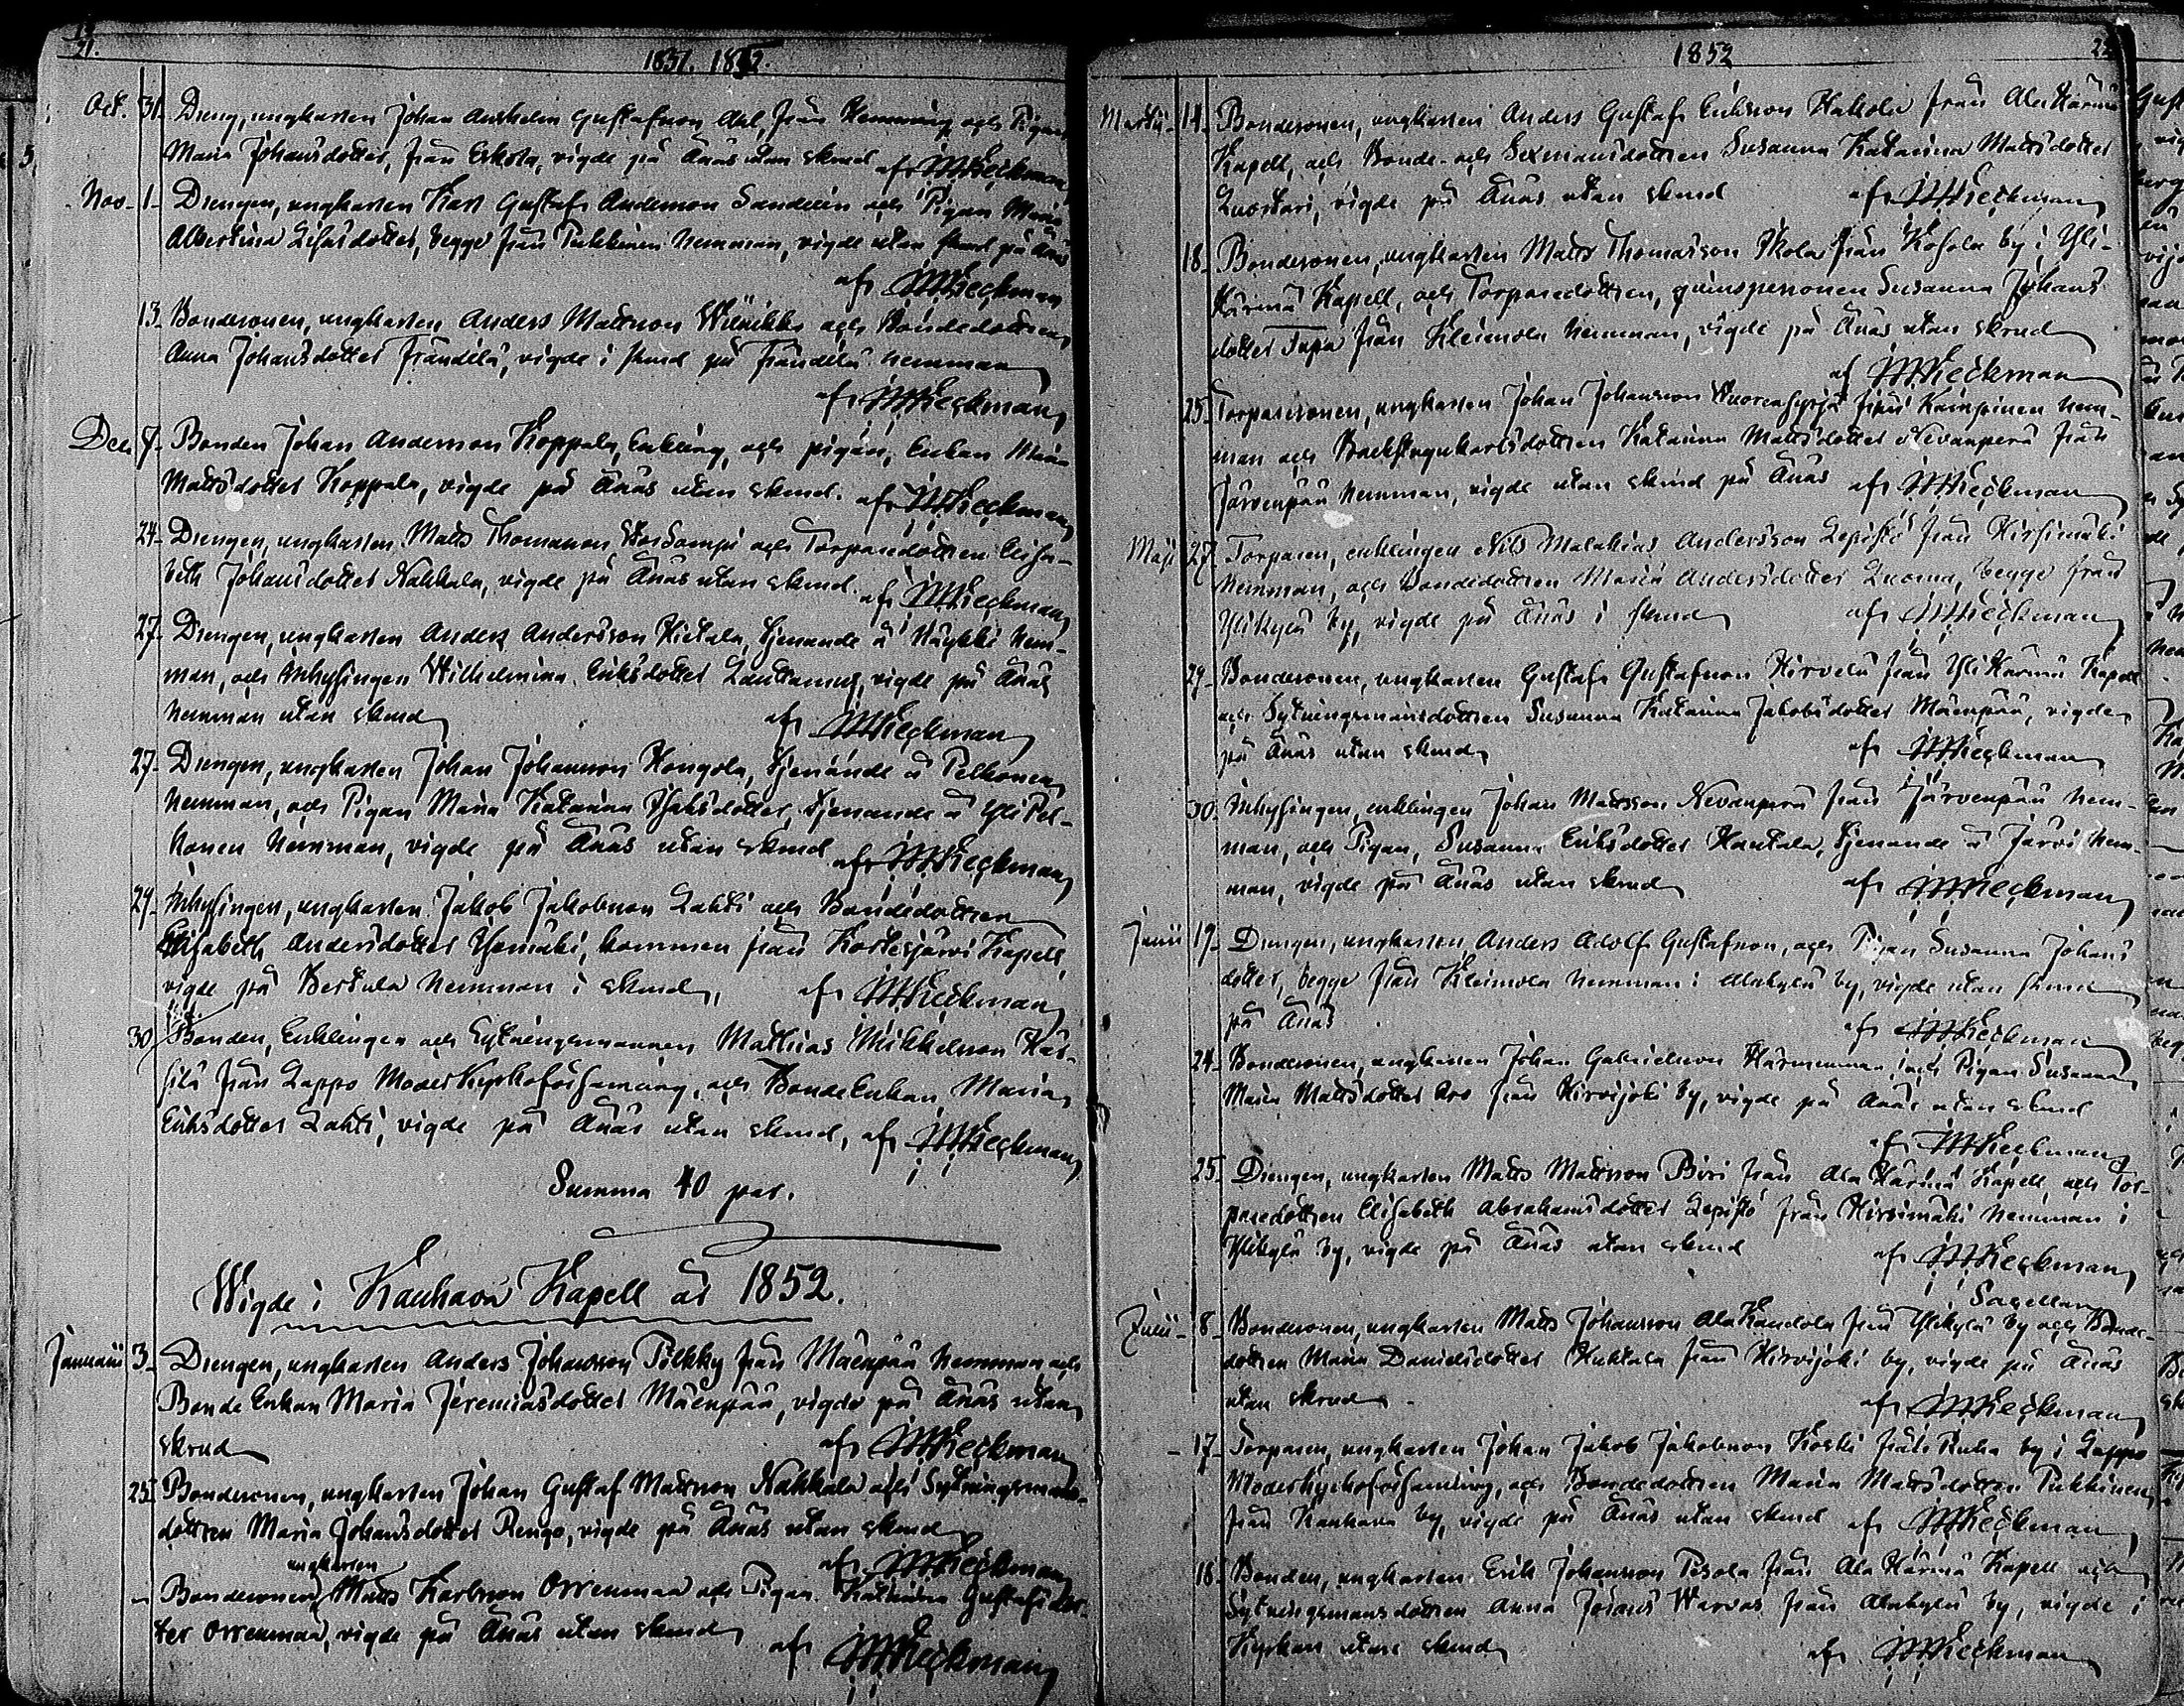 21.
1851. 1852.
Oct. 31. Dreng, ungkarlen Johan Anshelm Gustafsson Ahl, från Hemming och Pigan
Maria Johansdotter, från Eskola, vigde på Ånäs utan skrud af Wieckman
Nov. 1. Drengen, ungkarlen Karl Gustaf Andersson Sandelin och Pigan Maria
Albertina dotter, begge från Pukkinen hemman, vigde utan skrud på Ånäs
af Wieckman
13. Bondesonen, ungkarlen Anders Mattsson och Bondedottren
Anna Johansdotter Frändilä, vigde i skrud på Frändilä hemman
af Wieckman
Dec. 7. Bonden Johan Andersson Koppala, Enkling, och pigan, Enkan Maria
Mattsdotter Koppala, vigde på Ånäs utan skrud. af Wieckman
24. Drengen, ungkarlen Matts Thomasson och Torparedottren Elisa-
beth Johansdotter Nahkala, vigde på Ånäs utan skrud. af Wieckman
27. Drengen, ungkarlen Anders Andersson Hietala, tjenande å Näykki hem-
man, och Inhysingen Wilhelmina Eriksdotter Lauttamus, vigde på Ånäs
hemman utan skrud af Wieckman
27. Drengen, ungkarlen Johan Johansson Hongola, tjenande å Pelkonen
hemman, och Pigan Maria Katarina Isaksdotter, tjenande å Yli Pel-
konen hemman, vigde på Ånäs utan skrud af Wieckman
29. Inhysingen, ungkarlen Jakob Jakobsson Lahti och Bondedottren
Elisabeth Andersdotter Ylömäki, kommen från Kortesjärvi Kapell,
vigde på Bertula hemman i skrud, af Wieckman
30. Bonden, Enklingen och Sytningsmannen Mathias Mikkelsson Kas-
silä från Lappo Moder Kyrkoförsamling, och BondeEnkan Maria
Eriksdotter Lahti, vigde på Ånäs utan skrud, af Wieckman
Summa 40 par.
Wigde i Kauhava Kapell år 1852.
Januarii 3. Drengen, ungkarlen Anders Johansson Pölkky från Mäenpää hemman och
Bonde Enkan Maria Jeremiasdotter Mäenpää, vigde på Ånäs utan
skrud af Wieckman
25. Bondesonen, ungkarlen Johan Gustaf Mattsson Nahkala och Sytningsmans-
dottren Maria Johansdotter Rengo, vigde på Ånäs utan skrud
af Wieckman
ungkarlen
" Bondesonen Matts Karlsson Orrenmaa och Pigan Katharina Gustafsdot-
ter Orrenmaa, vigde på Ånäs utan skrud af Wieckman
1852
22
Martii 14. Bondesonen, ungkarlen Anders Gustaf Eriksson Hakola från Ala Härmä
Kapell, och Bonde- och Sexmansdottren Susanna Katarina Mattsdotter
Luostari, vigde på Ånäs utan skrud af Wieckman
18. Bondesonen, ungkarlen Matts Thomasson Skola från Kosola by i Yli-
Härmä Kapell, och Torparedottren, qvinspersonen Susanna Johans-
dotter Tupa från Kleimola hemman, vigde på Ånäs utan skrud
af Wieckman
25. Torparesonen, ungkarlen Johan Johansson Wuorensyrjä från Kampinen hem-
man och Backstugukarlsdottren Katarina Mattsdotter Nevanperä från
Järvenpää hemman, vigde utan skrud på Ånäs af Wieckman
Maji 27. Torparen, enklingen Nils Malakias Andersson Lepistö från Hirsimäki
hemman, och Bondedottren Maria Andersdotter Luoma, begge från
Ylikylä by, vigde på Ånäs i skrud af Wieckman
29. Bondesonen, ungkarlen Gustaf Gustafsson Hirvelä från Yli Härmä Kapell
och Sytningsmansdottren Susanna Katarina Jakobsdotter Mäenpää, vigde
på Ånäs utan skrud af Wieckman
30. Inhysingen, enklingen Johan Mattsson Nevanperä från Järvenpää hem-
man, och Pigan, Susanna Eriksdotter Hautala, tjenande å Järvi hem-
man, vigde på Ånäs utan skrud af Wieckman
Junii 19. Drengen, ungkarlen Anders Adolf Gustafsson, och Pigan Susanna Johans
dotter, begge från Kleimola hemman i Alakylä by, vigde utan skrud
på Ånäs af Wieckman
24. Bondesonen, ungkarlen Johan Gabrielsson Härmenmaa, och Pigan Susanna
Maria Mattsdotter Aro från Hirvijoki by, vigde på Ånäs utan skrud
af Wieckman
25. Drengen, ungkarlen Matts Mattsson Biri från Ala Härmä Kapell, och Tor-
paredottren Elisabeth Abrahamsdotter Lepistö från Hirsimäki hemman i
Ylikylä by, vigde på Ånäs utan skrud af Wieckman
Sacellan
Julii 8. Bondesonen, ungkarlen Matts Johansson AlaKandola från Ylikylä by och Bonde-
dottren Maria Danielsdotter Huhtala från Hirvijoki by, vigde på Ånäs
utan skrud af Wieckman
17. Torparen, ungkarlen Johan Jakob Jakobsson Koski från Ruha by i Lappo
Moderkyrkoförsamling, och Bondedottren Maria Mattsdotter Pukkinen
från Kauhava by, vigde på Ånäs utan skrud af Wieckman
18. Bonden, ungkarlen Erik Johansson Pesola från Ala Härmä Kapell och
Sytningsmansdottren Anna Johans Warvas från Alakylä by, vigde i
Kyrkan utan skrud af Wieckman